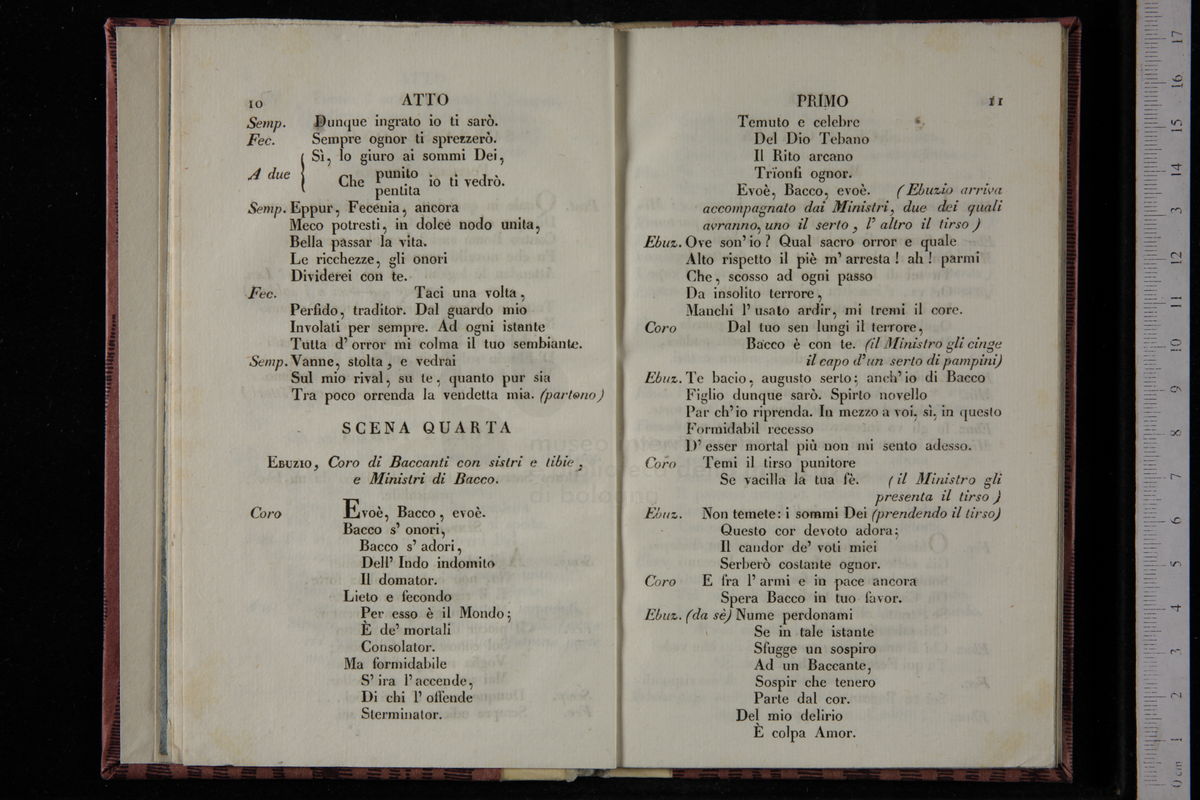 10 ATTO
Semp. Dunque ingrato io ti sarò.
Fec. Sempre ognor ti sprezzerò.
A due { Sì, lo giuro ai sommi Dei,
Che punito io ti vedrò.
pentita
Semp. Eppur, Fecenia, ancora
Meco potresti, in dolce nodo unita,
Bella passar la vita.
Le ricchezze, gli onori
Dividerei con te.
Fec. Taci una volta,
Perfido, traditor. Dal guardo mio
Involati per sempre. Ad ogni istante
Tutta d' orror mi colma il tuo sembiante.
Semp. Vanne, stolta, e vedrai
Sul mio rival, su te, quanto pur sia
Tra poco orrenda la vendetta mia. (partono)
SCENA QUARTA
EBUZIO, Coro di Baccanti con sistri e tibie,
e Ministri di Bacco.
Coro Evoè, Bacco, evoè.
Bacco s' onori,
Bacco s' adori,
Dell' Indo indomito
Il domator.
Lieto e fecondo
Per esso è il Mondo;
È de' mortali
Consolator.
Ma formidabile
S' ira l' accende,
Di chi l' offende
Sterminator.
PRIMO 11
Temuto e celebre
Del Dio Tebano
Il Rito arcano
Trionfi ognor.
Evoè, Bacco, evoè. (Ebuzio arriva
accompagnato dai Ministri, due dei quali
avranno, uno il serto, l' altro il tirso)
Ebuz. Ove son' io? Qual sacro orror e quale
Alto rispetto il piè m' arresta! ah! parmi
Che, scosso ad ogni passo
Da insolito terrore,
Manchi l' usato ardir, mi tremi il core.
Coro Dal tuo sen lungi il terrore,
Bacco è con te. (il Ministro gli cinge
il capo d' un serto di pampini)
Ebuz. Te bacio, augusto serto; anch' io di Bacco
Figlio dunque sarò. Spirto novello
Par ch' io riprenda. In mezzo a voi, sì, in questo
Formidabil recesso
D' esser mortal più non mi sento adesso.
Coro Temi il tirso punitore
Se vacilla la tua fè. (il Ministro gli
presenta il tirso)
Ebuz. Non temete: i sommi Dei (prendendo il tirso)
Questo cor devoto adora;
Il candor de' voti miei
Serberò costante ognor.
Coro E fra l' armi e in pace ancora
Spera Bacco in tuo favor.
Ebuz. (da sè) Nume perdonami
Se in tale istante
Sfugge un sospiro
Ad un Baccante,
Sospir che tenero
Parte dal cor.
Del mio delirio
È colpa Amor.